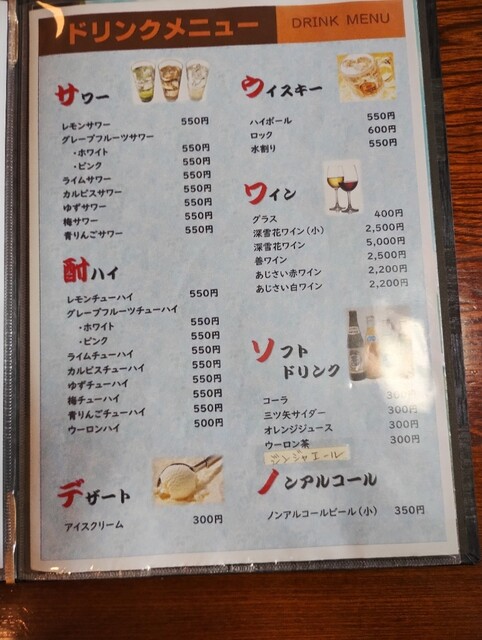 ドリンクメニュー
DRINK MENU
サワー
レモンサワー 550円
グレープフルーツサワー
・ホワイト 550円
・ピンク 550円
ライムサワー 550円
カルピスサワー 550円
ゆずサワー 550円
梅サワー 550円
青りんごサワー 550円
酎ハイ
レモンチューハイ 550円
グレープフルーツチューハイ
・ホワイト 550円
・ピンク 550円
ライムチューハイ 550円
カルピスチューハイ 550円
ゆずチューハイ 550円
梅チューハイ 550円
青りんごチューハイ 550円
ウーロンハイ 500円
デザート
アイスクリーム 300円
ウイスキー
ハイボール 550円
ロック 600円
水割り 550円
ワイン
グラス 400円
深雪花ワイン(小) 2,500円
深雪花ワイン 5,000円
善ワイン 2,500円
あじさい赤ワイン 2,200円
あじさい白ワイン 2,200円
ソフト
ドリンク
コーラ 300円
三ツ矢サイダー 300円
オレンジジュース 300円
ウーロン茶 300円
ジンジャエール
ノンアルコール
ノンアルコールビール(小) 350円